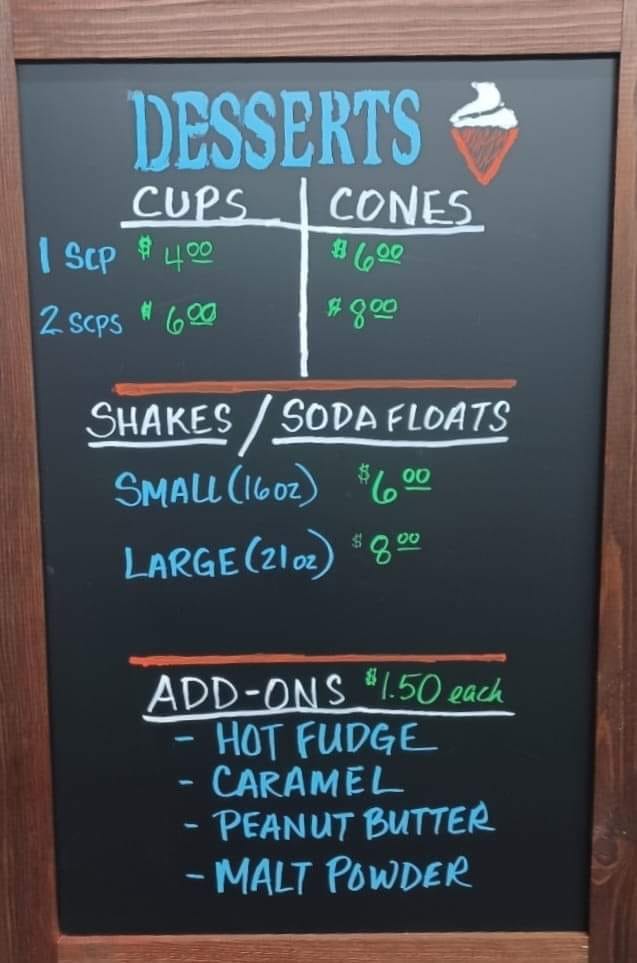 DESSERTS
CUPS CONES
1 SCP $4.00 $6.00
2 SCPS $6.00 $8.00
SHAKES / SODA FLOATS
SMALL (16oz) $6.00
LARGE (21oz) $8.00
ADD-ONS $1.50 each
- HOT FUDGE
- CARAMEL
- PEANUT BUTTER
- MALT POWDER